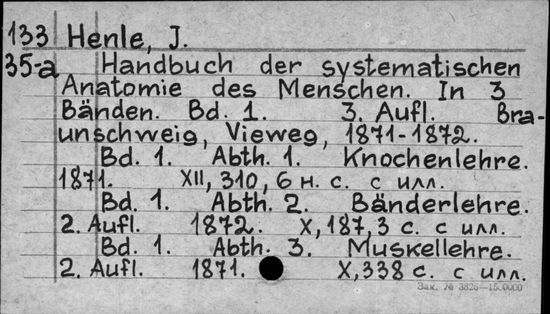 133 Henle, J.
35-a Handbuch der systematischen
Anatomie des Menschen. In 3
Bänden. Bd. 1. 3. Aufl. Bra-
unschweig, Vieweg, 1871-1872.
Bd. 1. Abth. 1. Knochenlehre.
1871. XII, 310, 6 н. с. с илл.
Bd. 1. Abth. 2. Bänderlehre.
2. Aufl. 1872. X, 187, 3 с. с илл.
Bd. 1. Abth. 3. Muskellehre.
2. Aufl. 1871. X, 338 с. с илл.
Зак. № 3826—15.0000